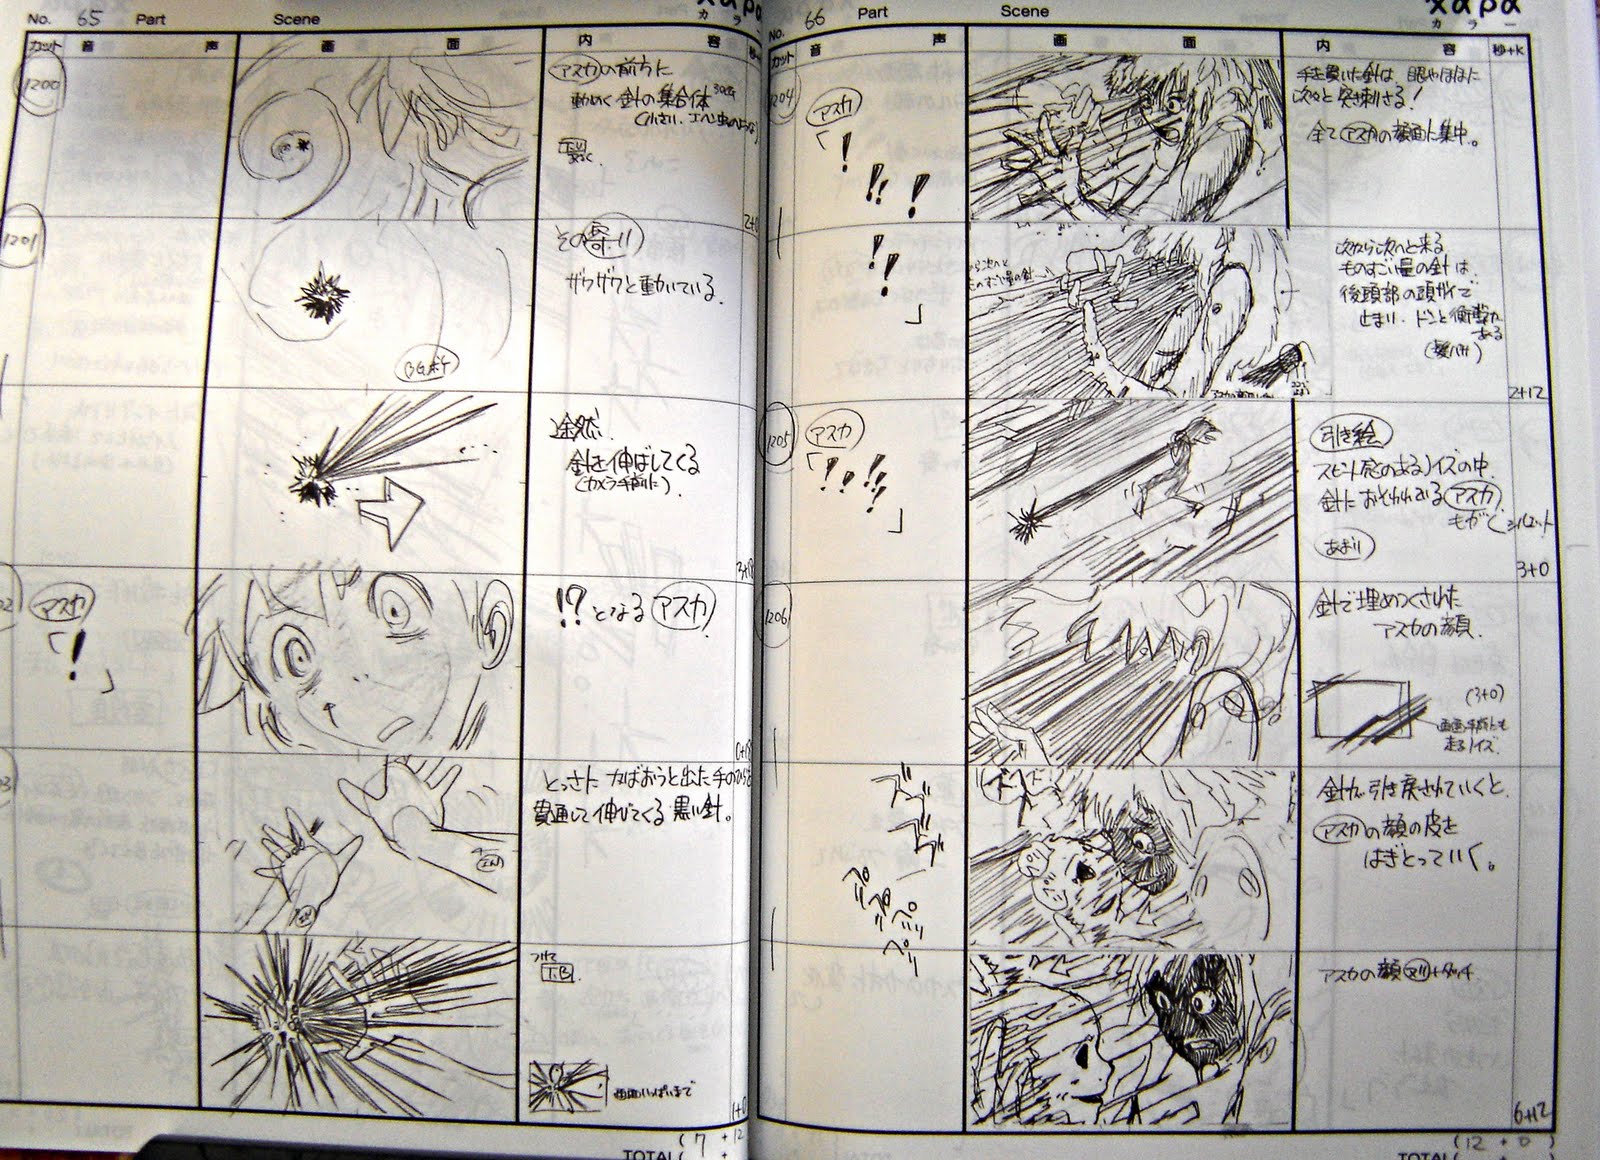 No. 65 Part Scene
カット 音 声 画 面 内 容
カラ
1200
アスカの前方に
動めく針の集合体
1201
その寄り
ザワザワと動いている。
BGボケ
突然、
針を伸ばしてくる
(カメラ手前に)
3+18
アスカ
「!」
!?となるアスカ
0+18
とっさに かばおうと出した手のひらを
貫通して伸びてくる黒い針。
つけて
T.B.
画面いっぱいまで
1+0
(7 + 12
TOTAL(
No. 66 Part Scene
カラー
カット 音 声 画 面 内 容 秒+K
1204
アスカ
「!
!! !
!! !
」
手を貫いた針は、眼やほほに
次々と突き刺さる!
全てアスカの顔面に集中。
次から次へと来る
ものすごい量の針は、
後頭部の頭ガイで
止まり、ドンと衝撃が
ある
2+12
1205
アスカ
「!!!!!
」
引き絵
スピード感のあるノイズの中、
針におそわれているアスカ
もがく シルエット
あおり
3+0
1206
針で埋めつくされた
アスカの顔。
(3+0)
画面手前にも
走るノイズ。
ズズ
ペリペリペリ
針が引き戻されていくと、
アスカの顔の皮を
はぎとっていく。
アスカの顔 マリ+タッチ
6+12
(12 + 0)
TOTAL(